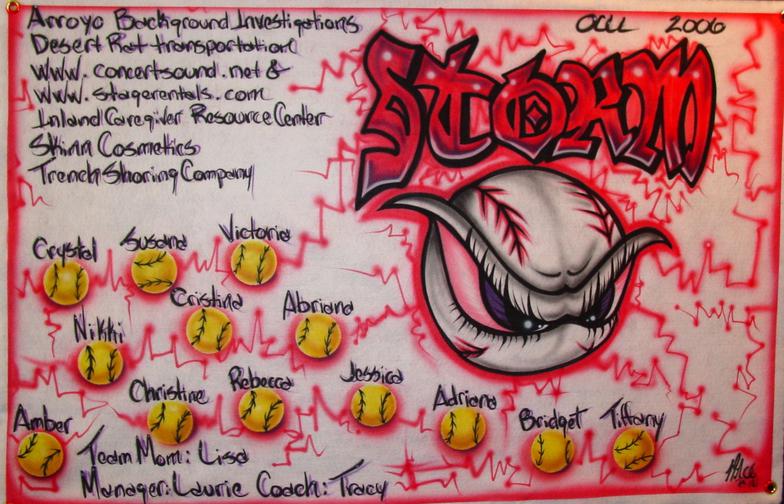 OCLL 2006
STORM
Arroyo Background Investigations
Desert Rat transportation
www.concertsound.net &
www.stagerentals.com
Inland Caregiver Resource Center
Skinn Cosmetics
Trench Shoring Company
Crystal Susana Victoria
Cristina Abriana
Nikki
Christine Rebecca Jessica
Adriana
Amber Bridget Tiffany
Team Mom: Lisa
Manager: Laurie Coach: Tracy